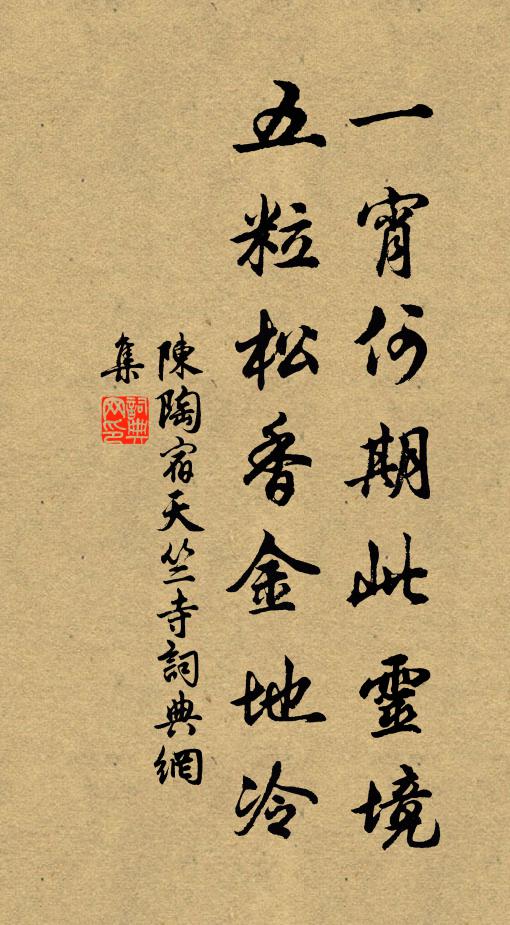 一宵何期此靈境
五粒松香金地冷
陳陶宿天竺寺詞典網
集
詞典網印